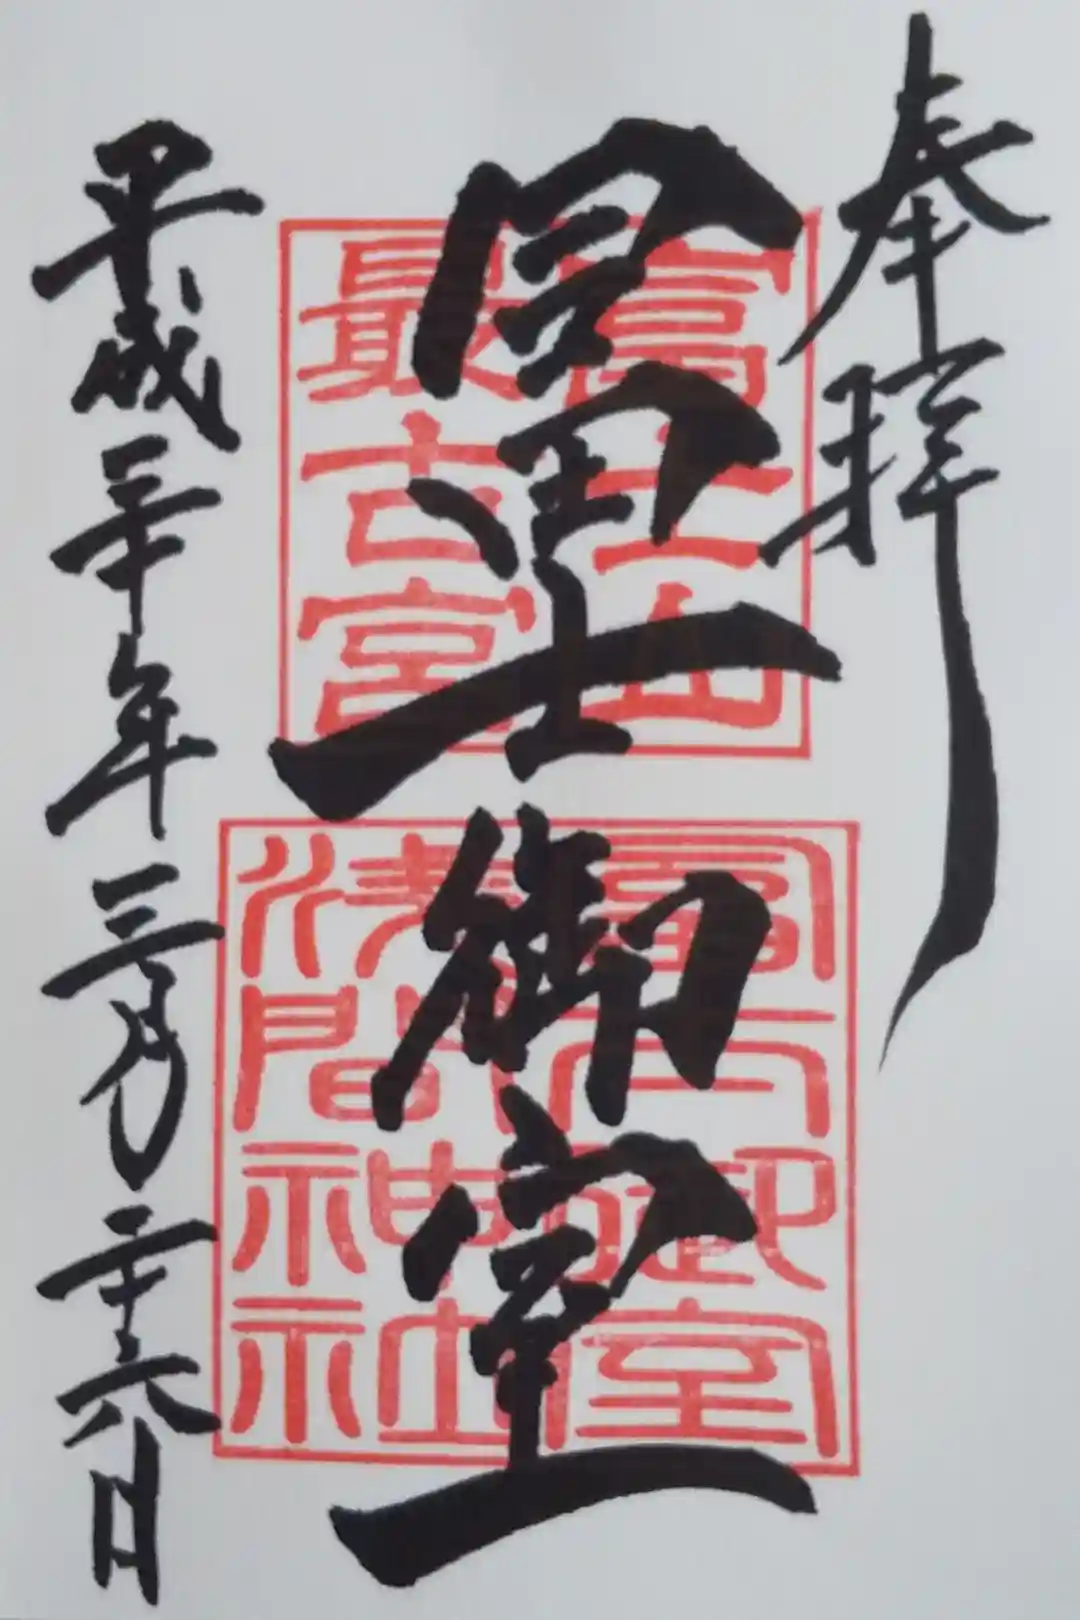 奉拝
冨士御室
平成三十年三月二十六日
冨士山
最古宮
冨士御室
浅間神社